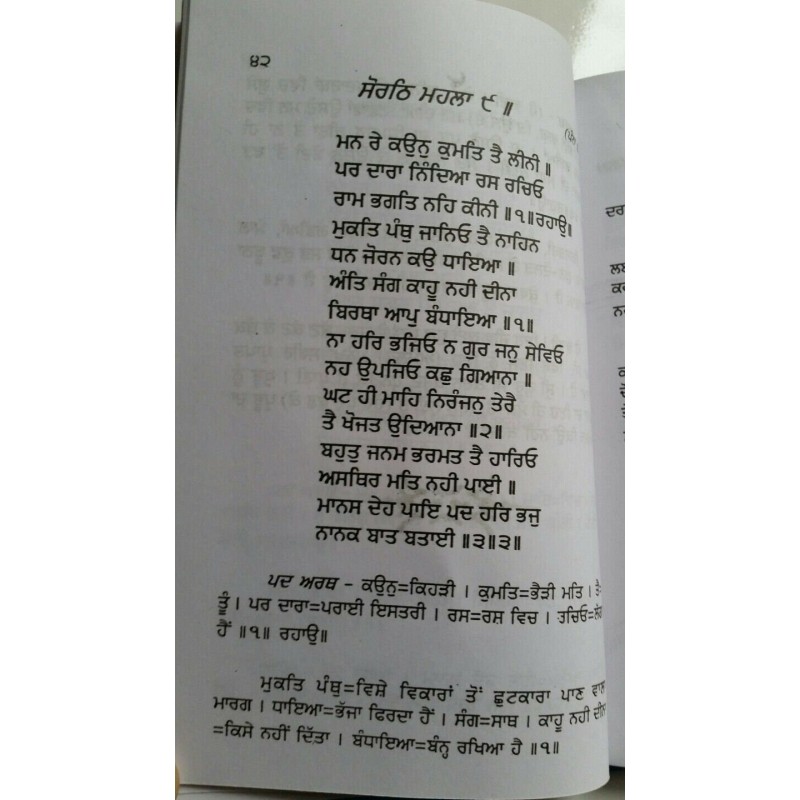 ੪੨
ਸੋਰਠਿ ਮਹਲਾ ੯ ॥
ਮਨ ਰੇ ਕਉਨੁ ਕੁਮਤਿ ਤੈ ਲੀਨੀ ॥
ਪਰ ਦਾਰਾ ਨਿੰਦਿਆ ਰਸ ਰਚਿਓ
ਰਾਮ ਭਗਤਿ ਨਹਿ ਕੀਨੀ ॥੧॥ਰਹਾਉ॥
ਮੁਕਤਿ ਪੰਥੁ ਜਾਨਿਓ ਤੈ ਨਾਹਿਨ
ਧਨ ਜੋਰਨ ਕਉ ਧਾਇਆ ॥
ਅੰਤਿ ਸੰਗ ਕਾਹੂ ਨਹੀ ਦੀਨਾ
ਬਿਰਥਾ ਆਪੁ ਬੰਧਾਇਆ ॥੧॥
ਨਾ ਹਰਿ ਭਜਿਓ ਨ ਗੁਰ ਜਨੁ ਸੇਵਿਓ
ਨਹ ਉਪਜਿਓ ਕਛੁ ਗਿਆਨਾ ॥
ਘਟ ਹੀ ਮਾਹਿ ਨਿਰੰਜਨੁ ਤੇਰੈ
ਤੈ ਖੋਜਤ ਉਦਿਆਨਾ ॥੨॥
ਬਹੁਤੁ ਜਨਮ ਭਰਮਤ ਤੈ ਹਾਰਿਓ
ਅਸਥਿਰ ਮਤਿ ਨਹੀ ਪਾਈ ॥
ਮਾਨਸ ਦੇਹ ਪਾਇ ਪਦ ਹਰਿ ਭਜੁ
ਨਾਨਕ ਬਾਤ ਬਤਾਈ ॥੩॥੩॥
ਪਦ ਅਰਥ - ਕਉਨੁ=ਕਿਹੜੀ । ਕੁਮਤਿ=ਭੈੜੀ ਮਤਿ । ਤੈ
ਤੂੰ । ਪਰ ਦਾਰਾ=ਪਰਾਈ ਇਸਤਰੀ । ਰਸ=ਰਸ਼ ਵਿਚ ।
ਹੈਂ ॥੧॥ ਰਹਾਉ॥
ਮੁਕਤਿ ਪੰਥੁ=ਵਿਸ਼ੇ ਵਿਕਾਰਾਂ ਤੋਂ ਛੁਟਕਾਰਾ ਪਾਣ ਵਾਲ
ਮਾਰਗ । ਧਾਇਆ=ਭੱਜਾ ਫਿਰਦਾ ਹੈਂ । ਸੰਗ=ਸਾਥ । ਕਾਹੂ ਨਹੀ ਦੀਨਾ
=ਕਿਸੇ ਨਹੀਂ ਦਿੱਤਾ । ਬੰਧਾਇਆ=ਬੰਨ੍ਹ ਰਖਿਆ ਹੈ ॥੧॥